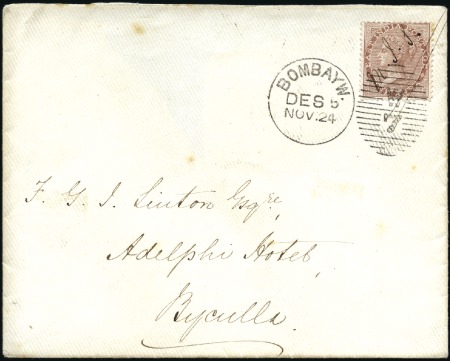 BOMBAY.W.
DES 5
NOV.24
F. G. J. Linton Esqre,
Adelphi Hotel,
Byculla.